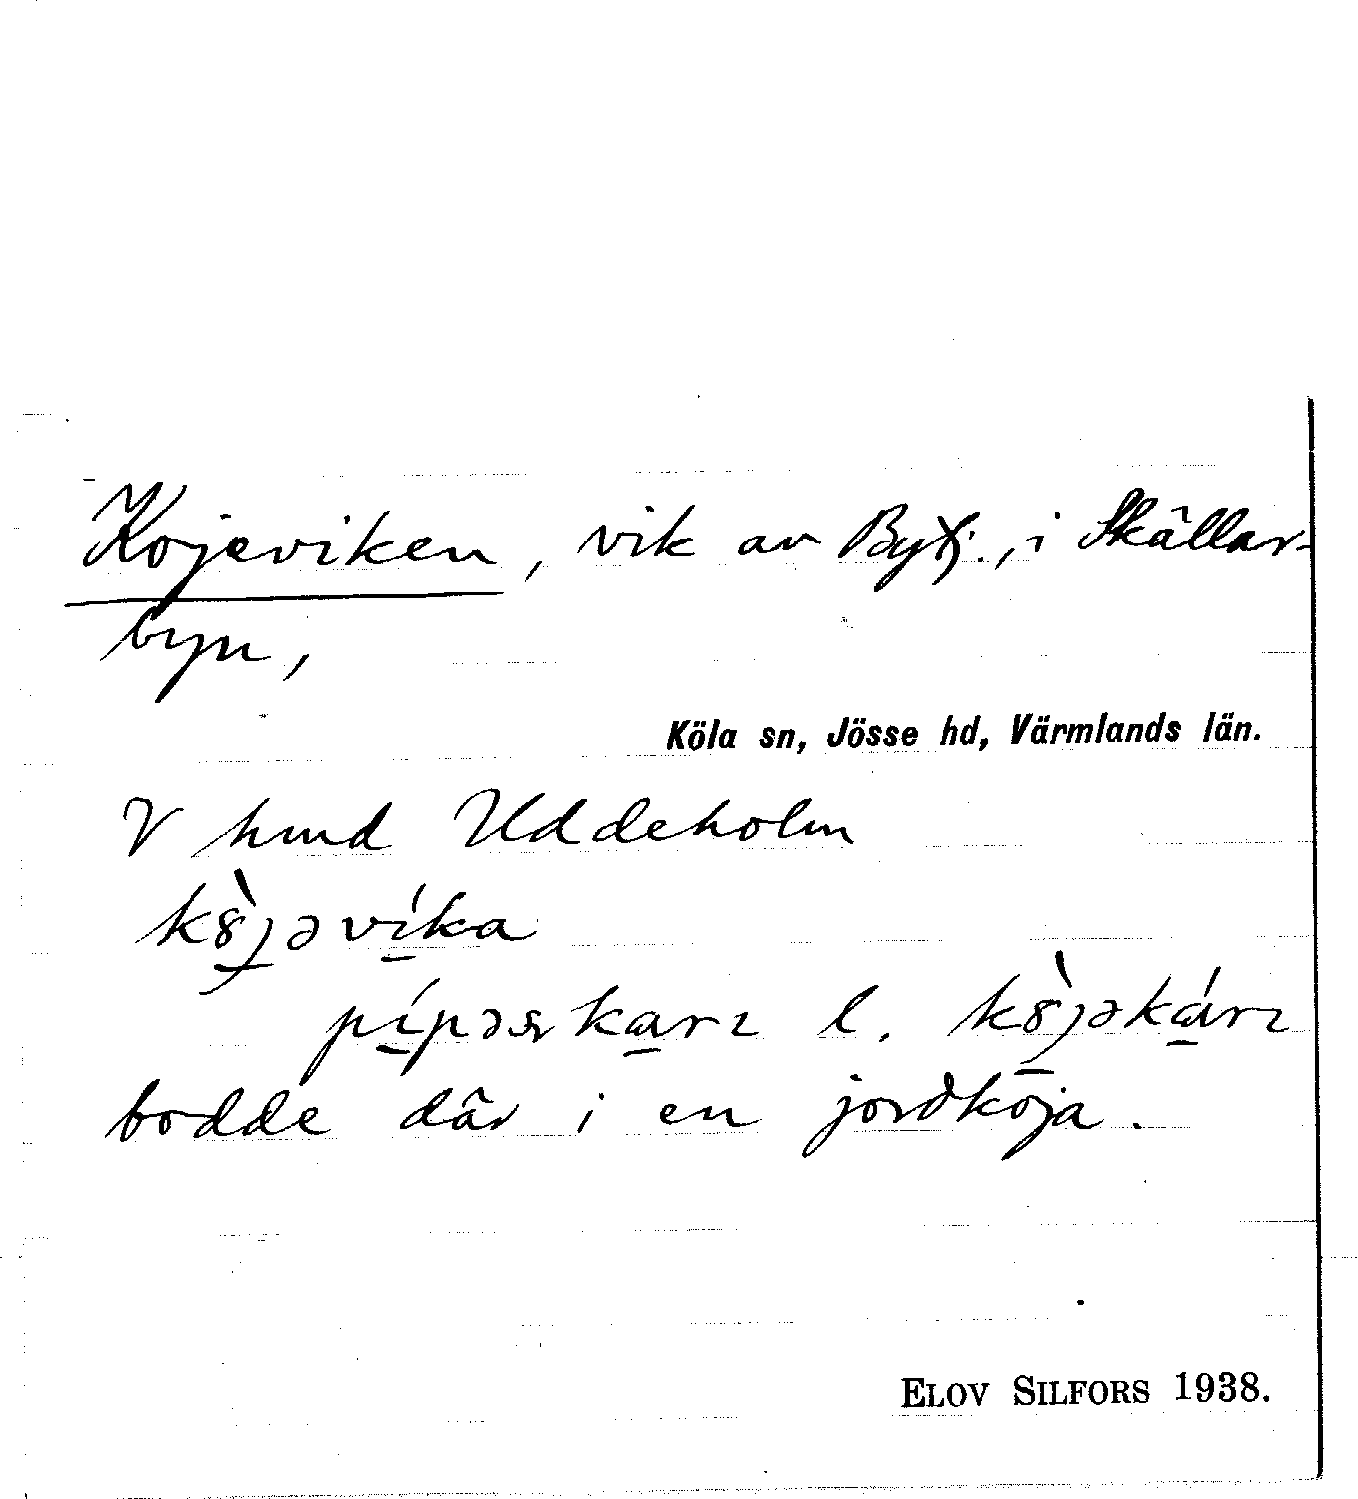 Kojeviken, vik av Bytj., i Skällar-
byn,
Köla sn, Jösse hd, Värmlands län.
V hmd Uddeholm
k8̀jəvíka
l. k8̀jəkárɩ
bodde där i en jordkoja.
ELOV SILFORS 1938.